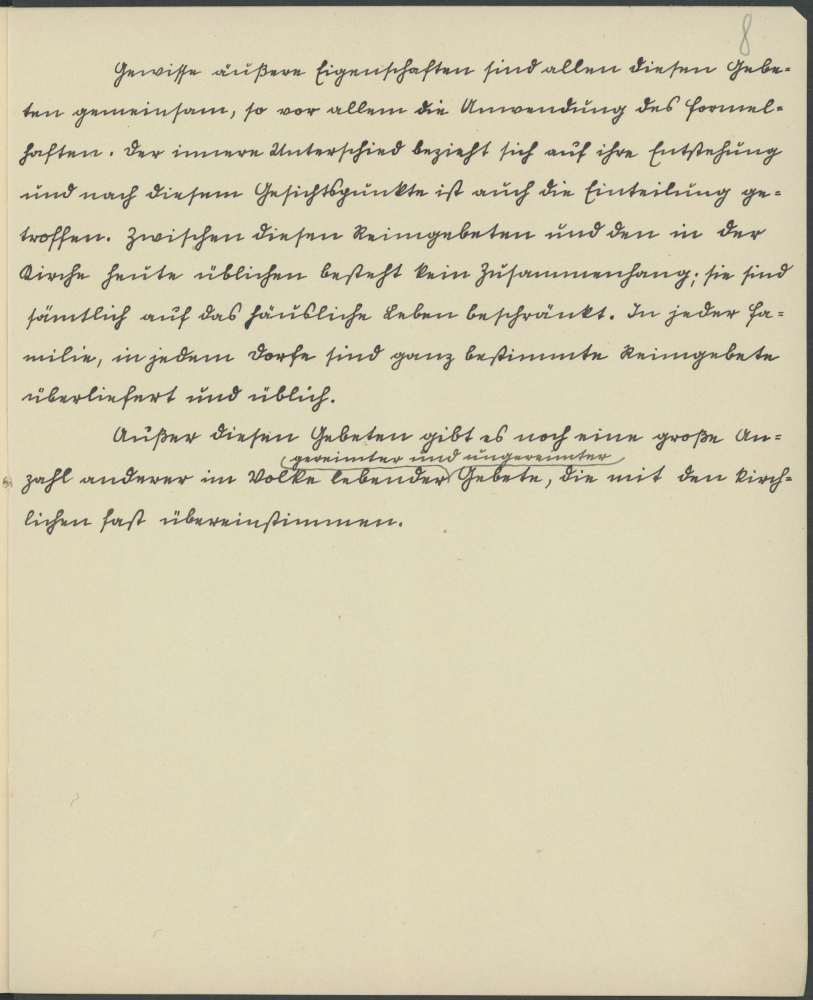 8
Gewisse äußere Eigenschaften sind allen diesen Gebe-
ten gemeinsam, so vor allem die Anwendung des Formel-
haften. Der innere Unterschied bezieht sich auf ihre Entstehung
und nach diesem Gesichtspunkte ist auch die Einteilung ge-
troffen. Zwischen diesen Reimgebeten und den in der
Kirche heute üblichen besteht kein Zusammenhang; sie sind
sämtlich auf das häusliche Leben beschränkt. In jeder Fa-
milie, in jedem Dorfe sind ganz bestimmte Reimgebete
überliefert und üblich.
Außer diesen Gebeten gibt es noch eine große An-
gereimter und ungereimter
zahl anderer im Volke lebender Gebete, die mit den kirch-
lichen fast übereinstimmen.